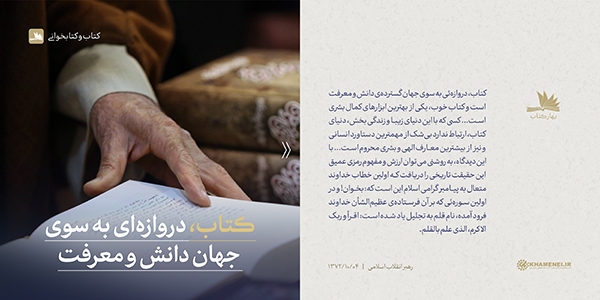 کتاب و کتابخوانی
کتاب، دروازه‌ای به سوی
جهان دانش و معرفت
کتاب، دروازه‌ئی به سوی جهان گسترده‌ی دانش و معرفت
است و کتاب خوب، یکی از بهترین ابزارهای کمال بشری
است... کسی که با این دنیای زیبا و زندگی بخش، دنیای
کتاب، ارتباط ندارد بی‌شک از مهمترین دستاورد انسانی
و نیز از بیشترین معارف الهی و بشری محروم است... با
این دیدگاه، به روشنی می‌توان ارزش و مفهوم رمزی عمیق
این حقیقت تاریخی را دریافت که اولین خطاب خداوند
متعال به پیامبر گرامی اسلام این است که: بخوان! و در
اولین سوره‌ئی که بر آن فرستاده‌ی عظیم‌الشأن خداوند
فرود آمده، نام قلم به تجلیل یاد شده است: اقرأ و ربک
الاکرم، الذی علم بالقلم.
بهار کتاب
رهبر انقلاب اسلامی | ۱۳۷۲/۱۰/۰۴
KHAMENEI.IR